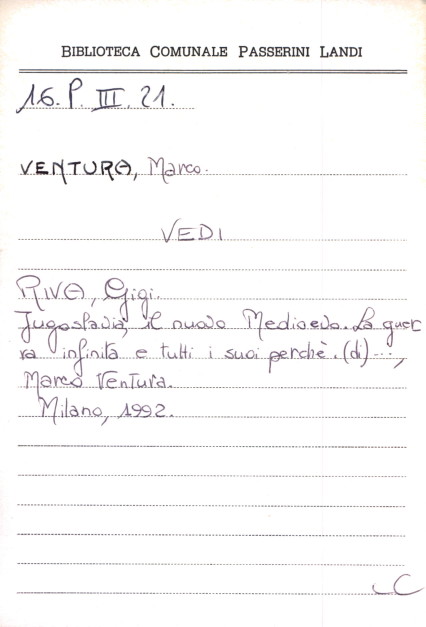 BIBLIOTECA COMUNALE PASSERINI LANDI
16. P. III. 21.
VENTURA, Marco.
VEDI
RIVA, Gigi.
Jugoslavia, il nuovo Medioevo. La guer
ra infinita e tutti i suoi perchè. (di) ---,
Marco Ventura.
Milano, 1992.
C